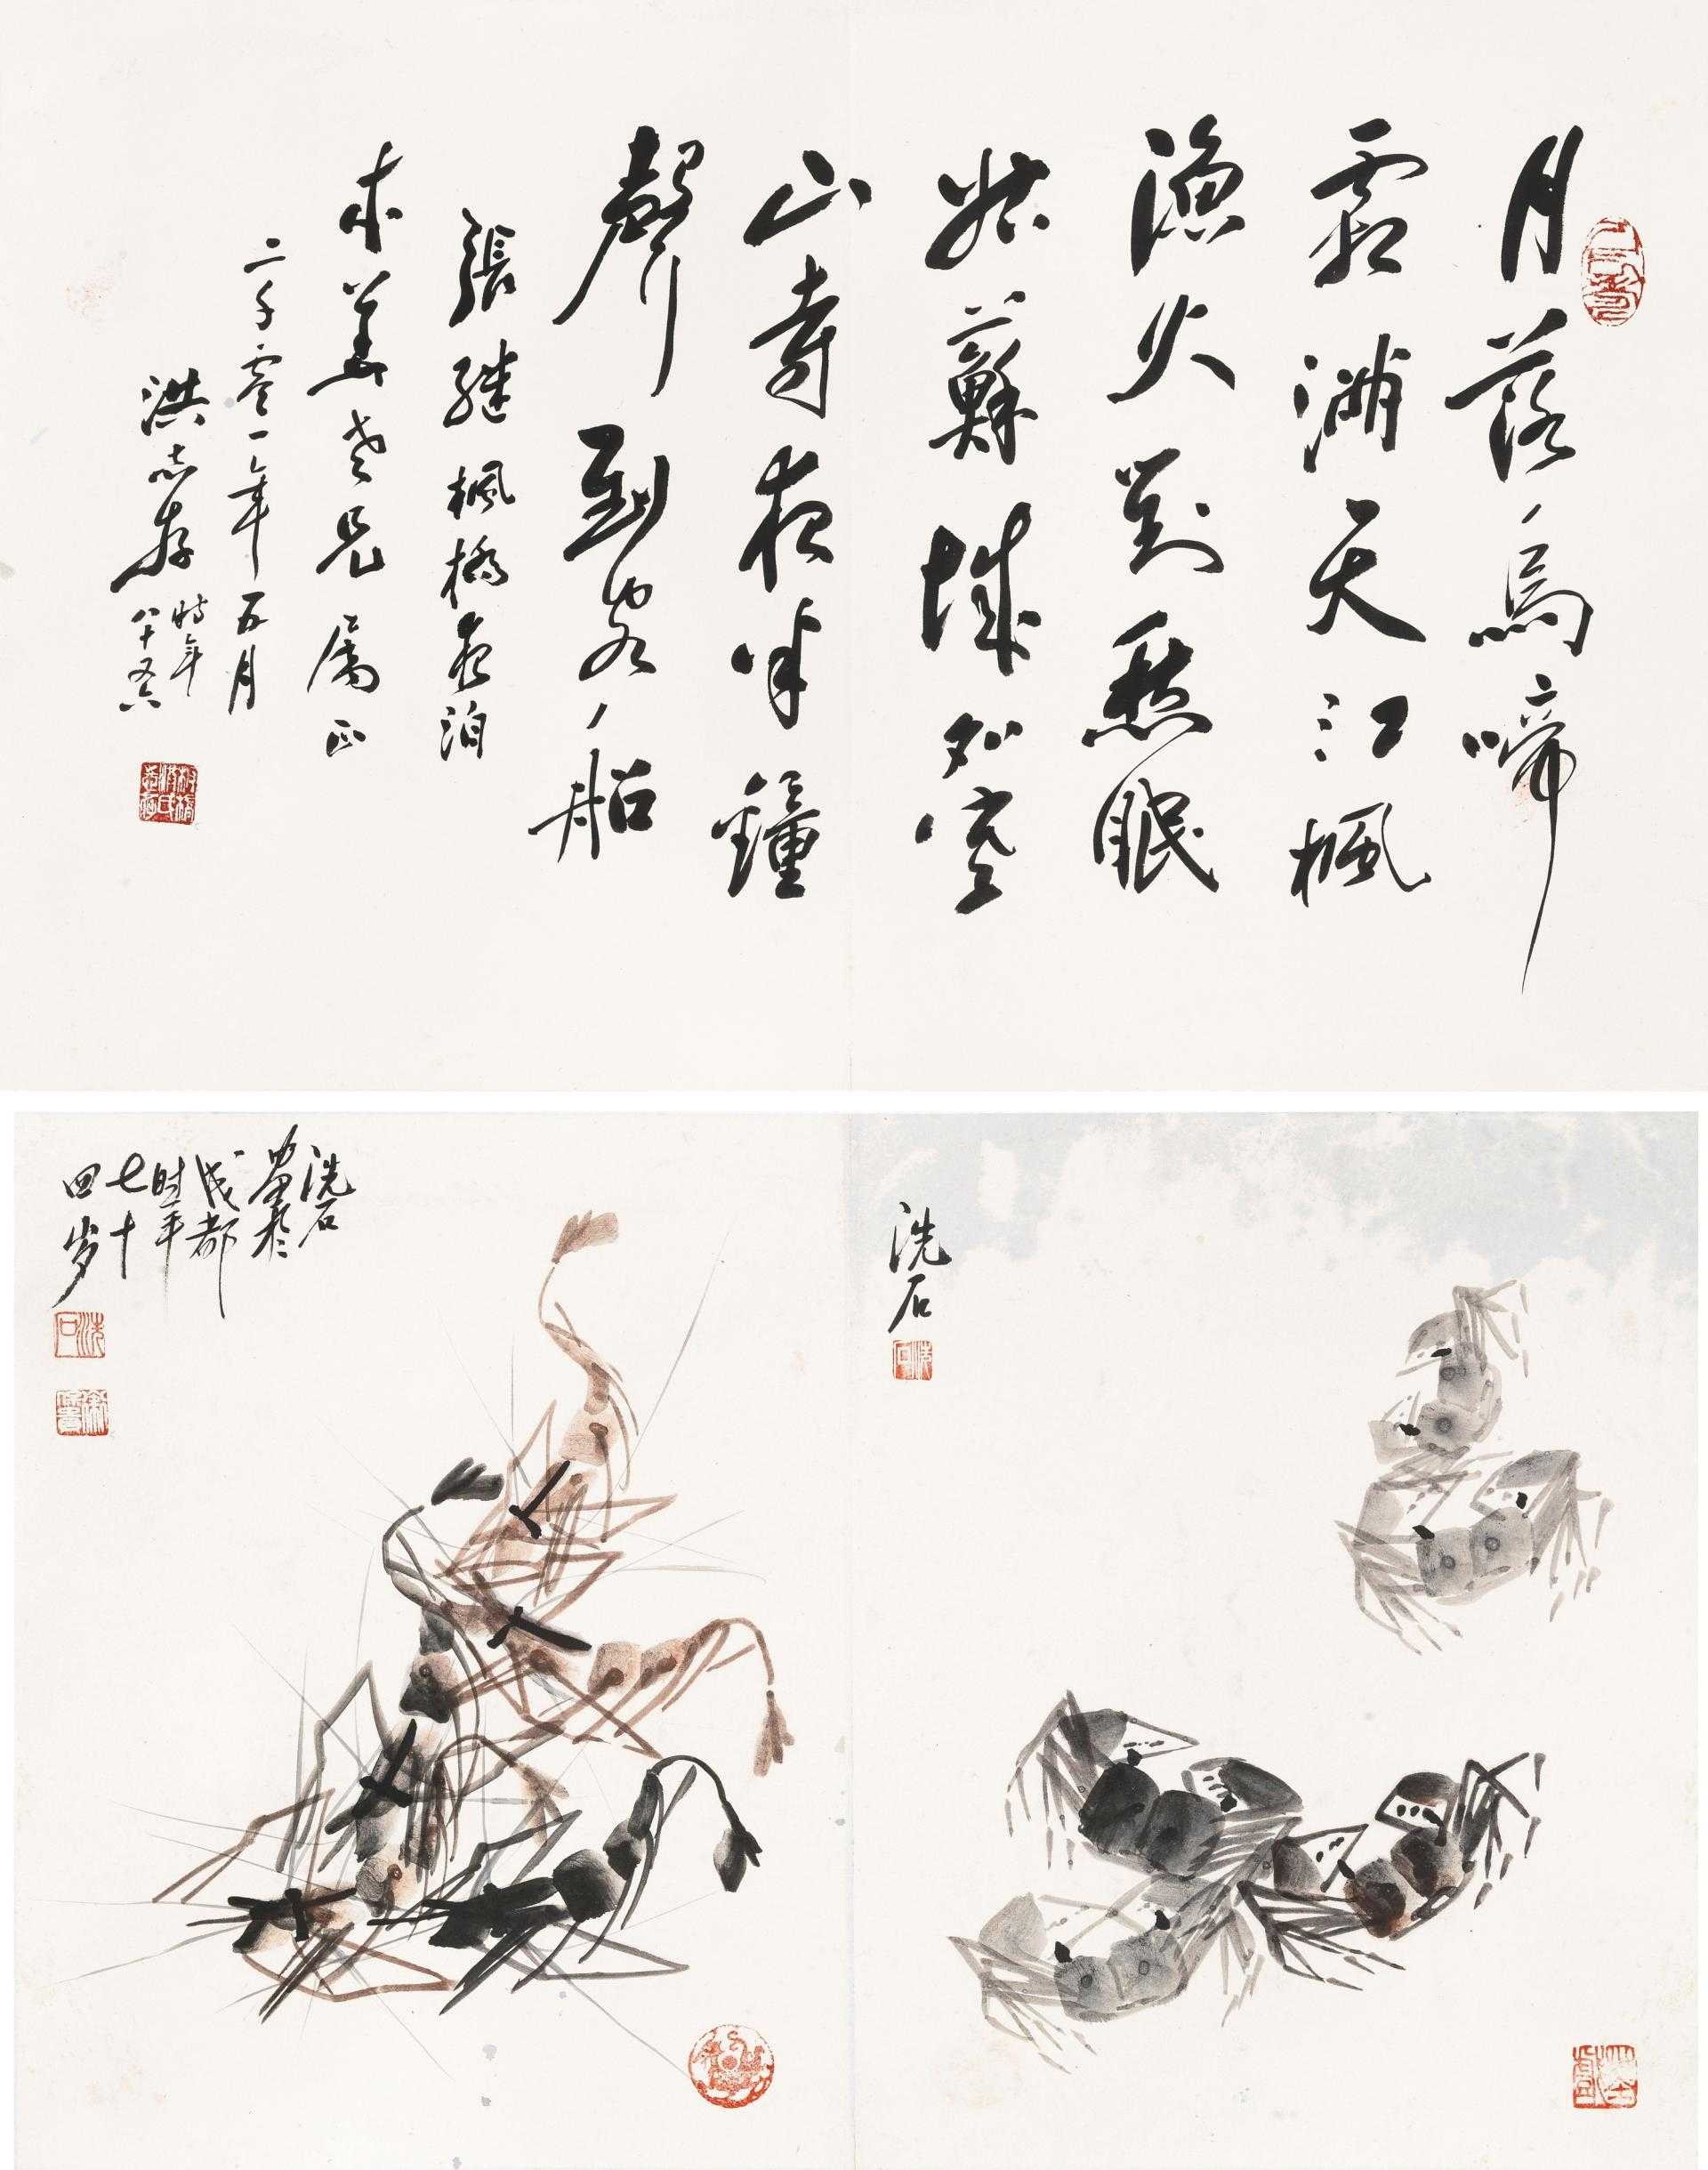 月落烏啼
霜滿天江楓
漁火對愁眠
姑蘇城外寒
山寺夜半鐘
聲到客船
張继楓橋夜泊
美老兄属正
二千零一年五月
洪志存
時年
八十又六
洗石
洗石
畫於
成都
时年
七十
四岁
洗石